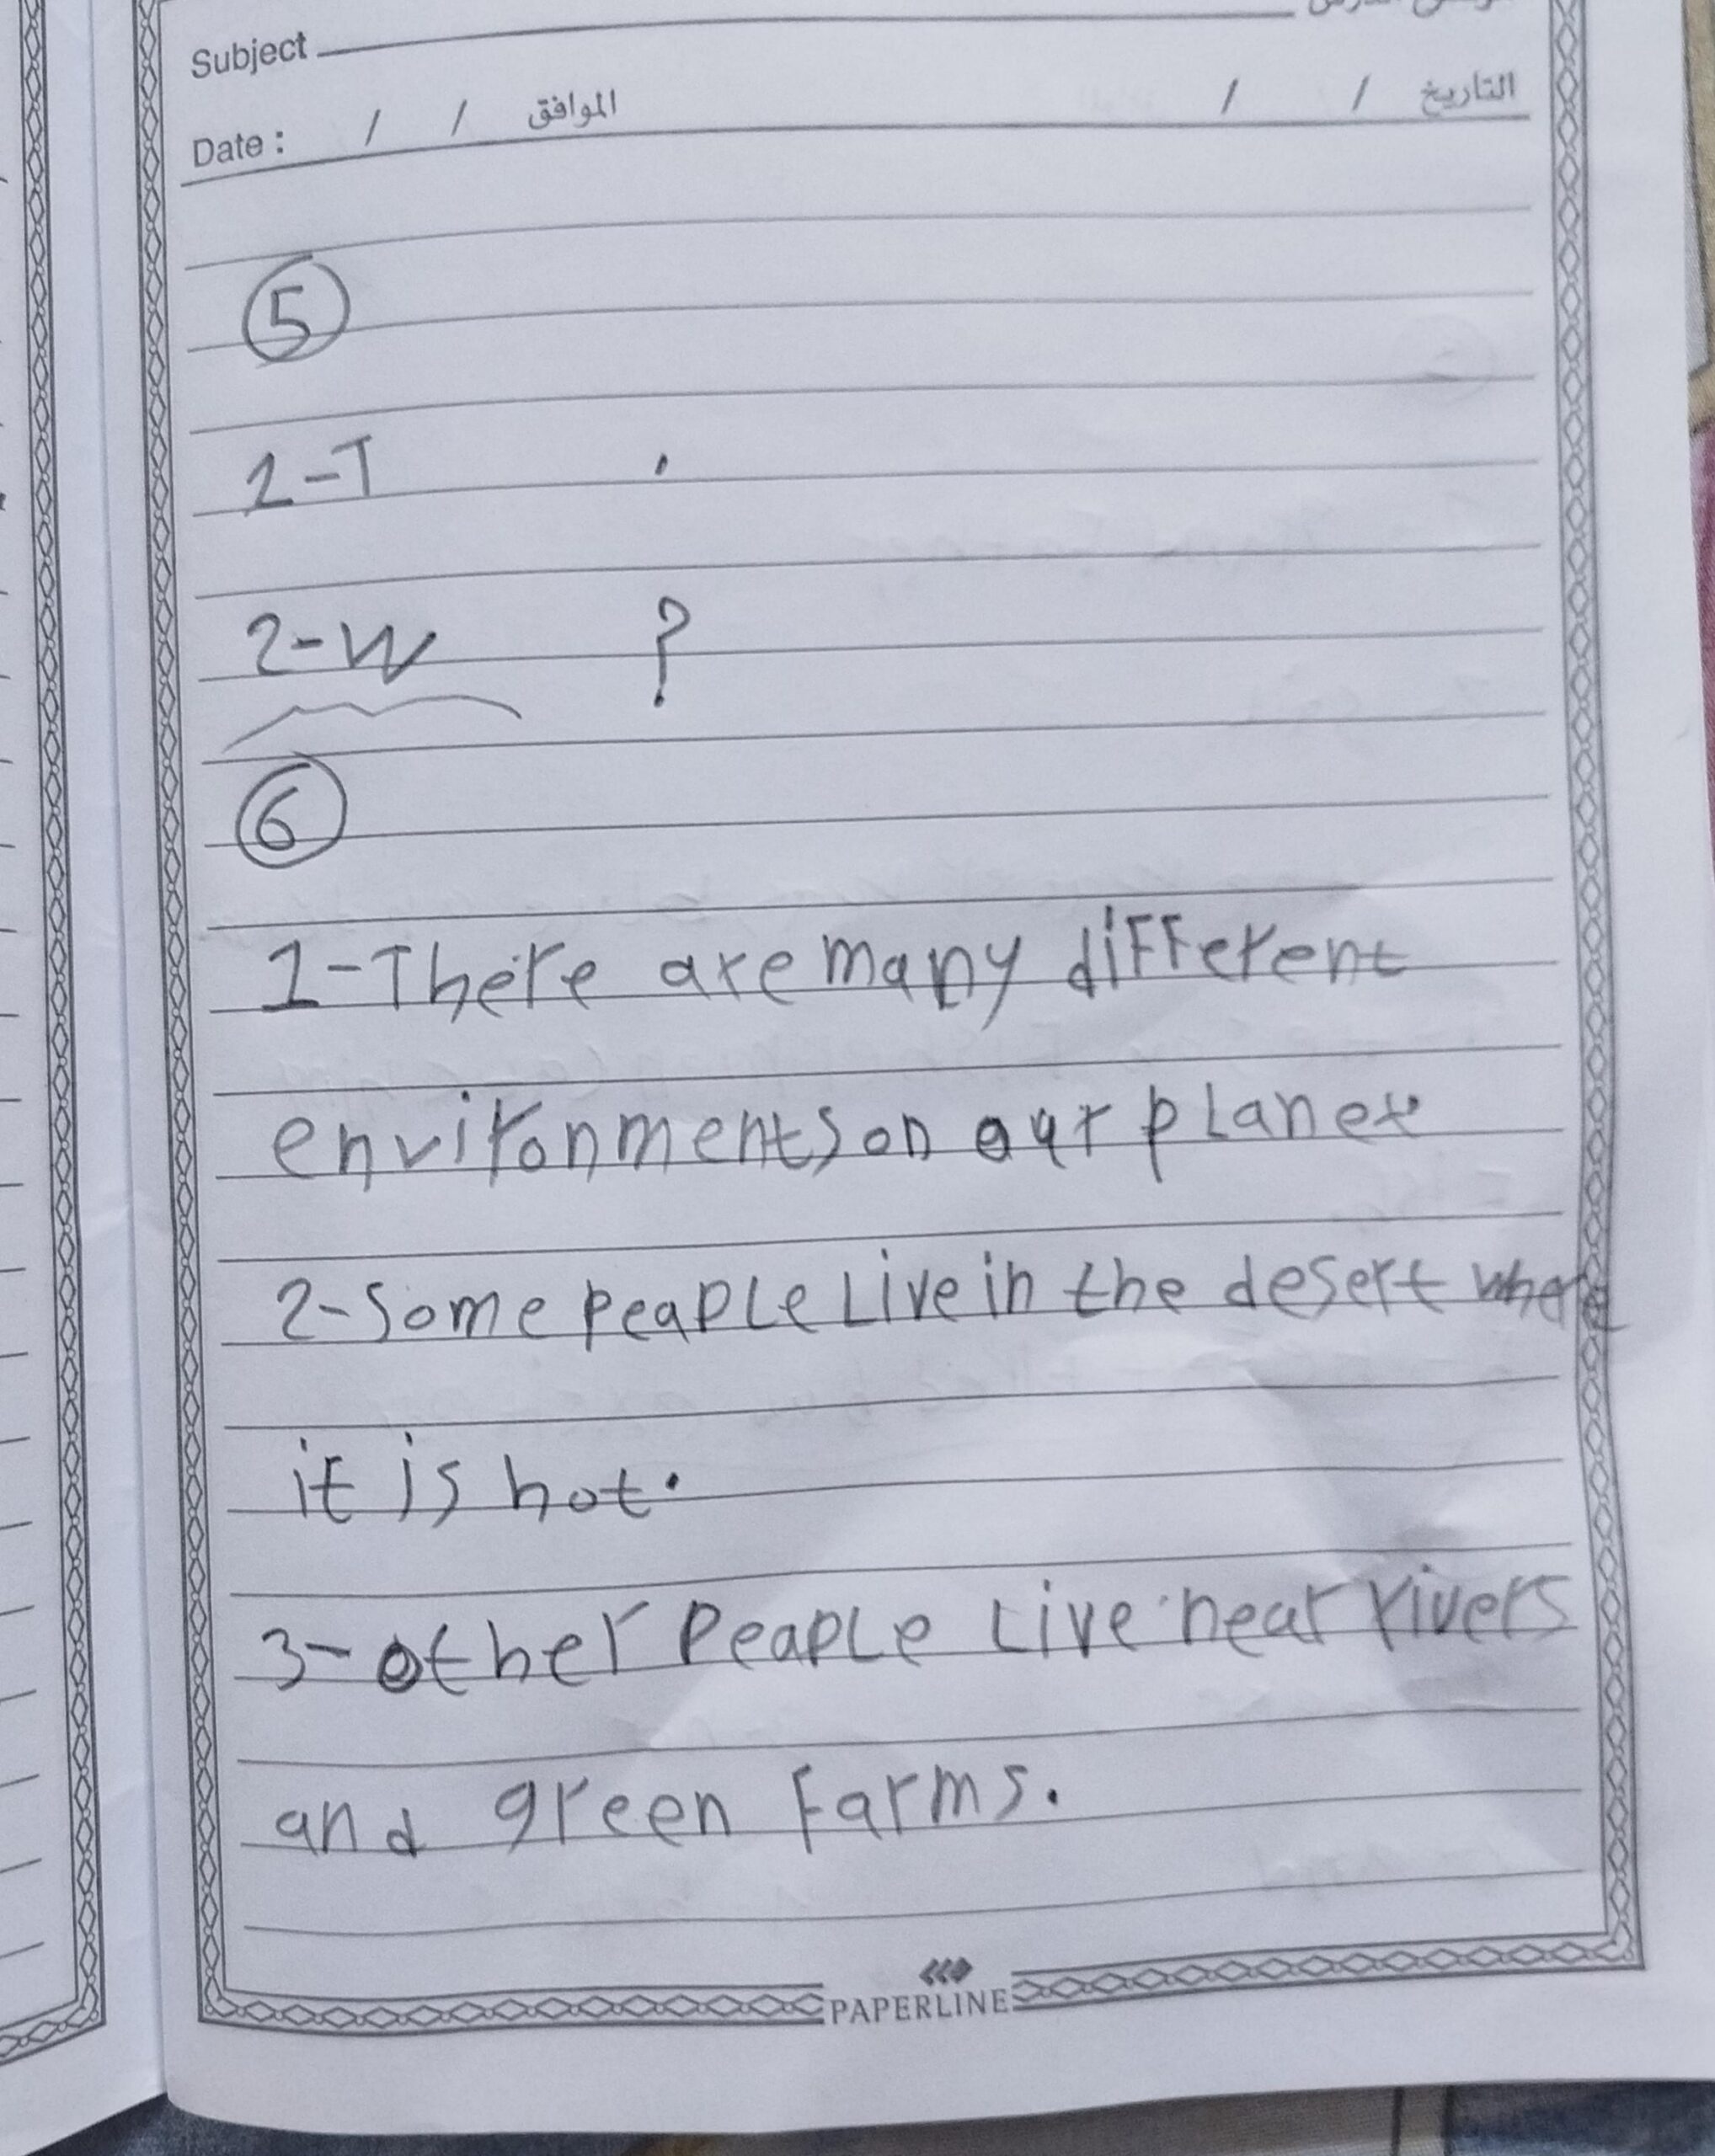 Subject
Date : / / الموافق / / التاريخ
5
1-T .
2-W ?
6
1-There are many different
environments on our planet
2-Some peaple Live in the desert where
it is hot.
3-other Peaple Live near rivers
and green Farms.
PAPERLINE